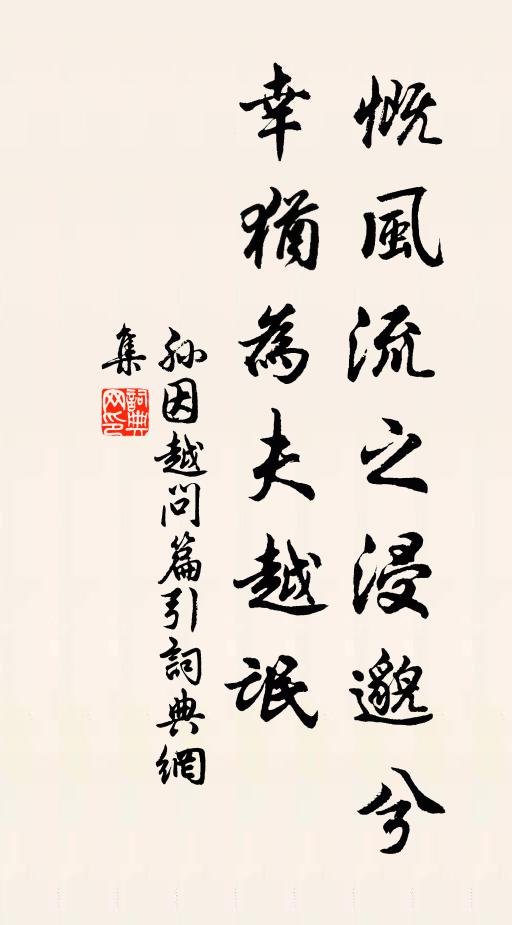 慨風流之浸邈兮
幸猶為夫越氓
孙因越问篇引詞典網
集
詞典
网印